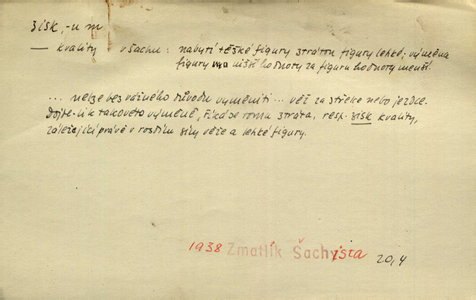 zisk, -u m
— kvality v šachu: nabytí těžké figury ztrátou figury lehké; výměna
figury vyšší hodnoty za figuru hodnoty menší.
... nelze bez vážného důvodu vyměniti ... věž za střelce nebo jezdce.
Dojde-li k takovéto výměně, říká se tomu ztráta, resp. zisk kvality,
záležející právě v rozdílu síly věže a lehké figury.
1938 Zmatlík Šachista 20,4